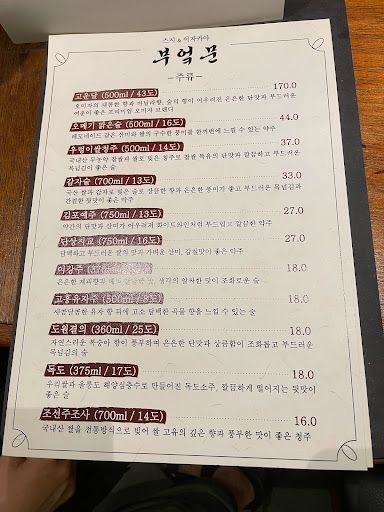 스시 & 이자카야
부엌문
-주류-
고운달 (500ml / 43도) 170.0
오미자의 새콤한 향과 바닐라향, 술의 향이 어우러진 은은한 단맛과 부드러운
여운이 좋은 프리미엄 오미자 브랜디
오메기 맑은술 (500ml / 16도) 44.0
레모네이드 같은 산미와 쌀의 구수한 풍미를 한꺼번에 느낄 수 있는 약주
우렁이쌀청주 (500ml / 14도) 37.0
국내산 무농약 찹쌀과 쌀로 빚은 청주로 찹쌀 특유의 단맛과 깔끔하고 부드러운
목넘김이 좋은 술
감자술 (700ml / 13도) 33.0
국산 쌀과 감자로 빚은 술로 상큼한 향과 은은한 풍미가 좋고 부드러운 목넘김과
간결한 뒷맛이 좋은 약주
김포예주 (750ml / 13도) 27.0
약간의 단맛과 산미가 어우러져 화이트와인처럼 부드럽고 깔끔한 약주
단상지교 (750ml / 16도) 27.0
담백하고 부드러운 쌀의 맛과 가벼운 산미, 감칠맛이 좋은 약주
이강주 18.0
은은한 계피향과 생강의 알싸한 맛이 조화로운 술
고흥유자주 (500ml / 8도) 18.0
새콤달콤한 유자 향 뒤에 고소 담백한 곡물 향을 느낄 수 있는 술
도원결의 (360ml / 25도) 18.0
자연스러운 복숭아 향이 풍부하며 은은한 단맛과 상큼함이 조화롭고 부드러운
목넘김의 술
독도 (375ml / 17도) 18.0
우리쌀과 울릉도 해양심층수로 만들어진 독도소주, 깔끔하게 떨어지는 뒷맛이
좋은 술
조선주조사 (700ml / 14도) 16.0
국내산 쌀을 전통방식으로 빚어 쌀 고유의 깊은 향과 풍부한 맛이 좋은 청주